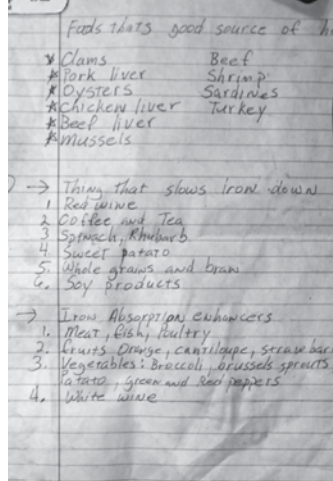 Foods thats good source of
* Clams Beef
* Pork liver Shrimp
* Oysters Sardines
* Chicken liver Turkey
* Beef liver
* Mussels
→ Thing that slows Iron down
1. Red wine
2. Coffee and Tea
3. Spinach, Rhubarb
4. Sweet patato
5. Whole grains and bran
6. Soy products
→ Iron Absorption enhancers
1. Meat, fish, Poultry
2. fruits Orange, cantiloupe, straw bar
3. Vegetables: Broccoli, brussels sprouts
Patato, green and Red peppers
4. White wine